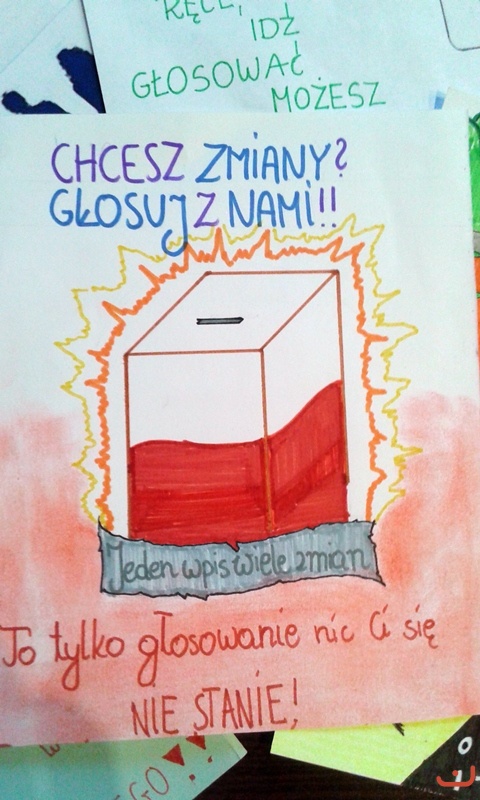 RĘCE,
IDŹ
GŁOSOWAĆ
MOŻESZ
CHCESZ ZMIANY?
GŁOSUJ Z NAMI!!
Jeden wpis wiele zmian
To tylko głosowanie nic Ci się
NIE STANIE!
GO